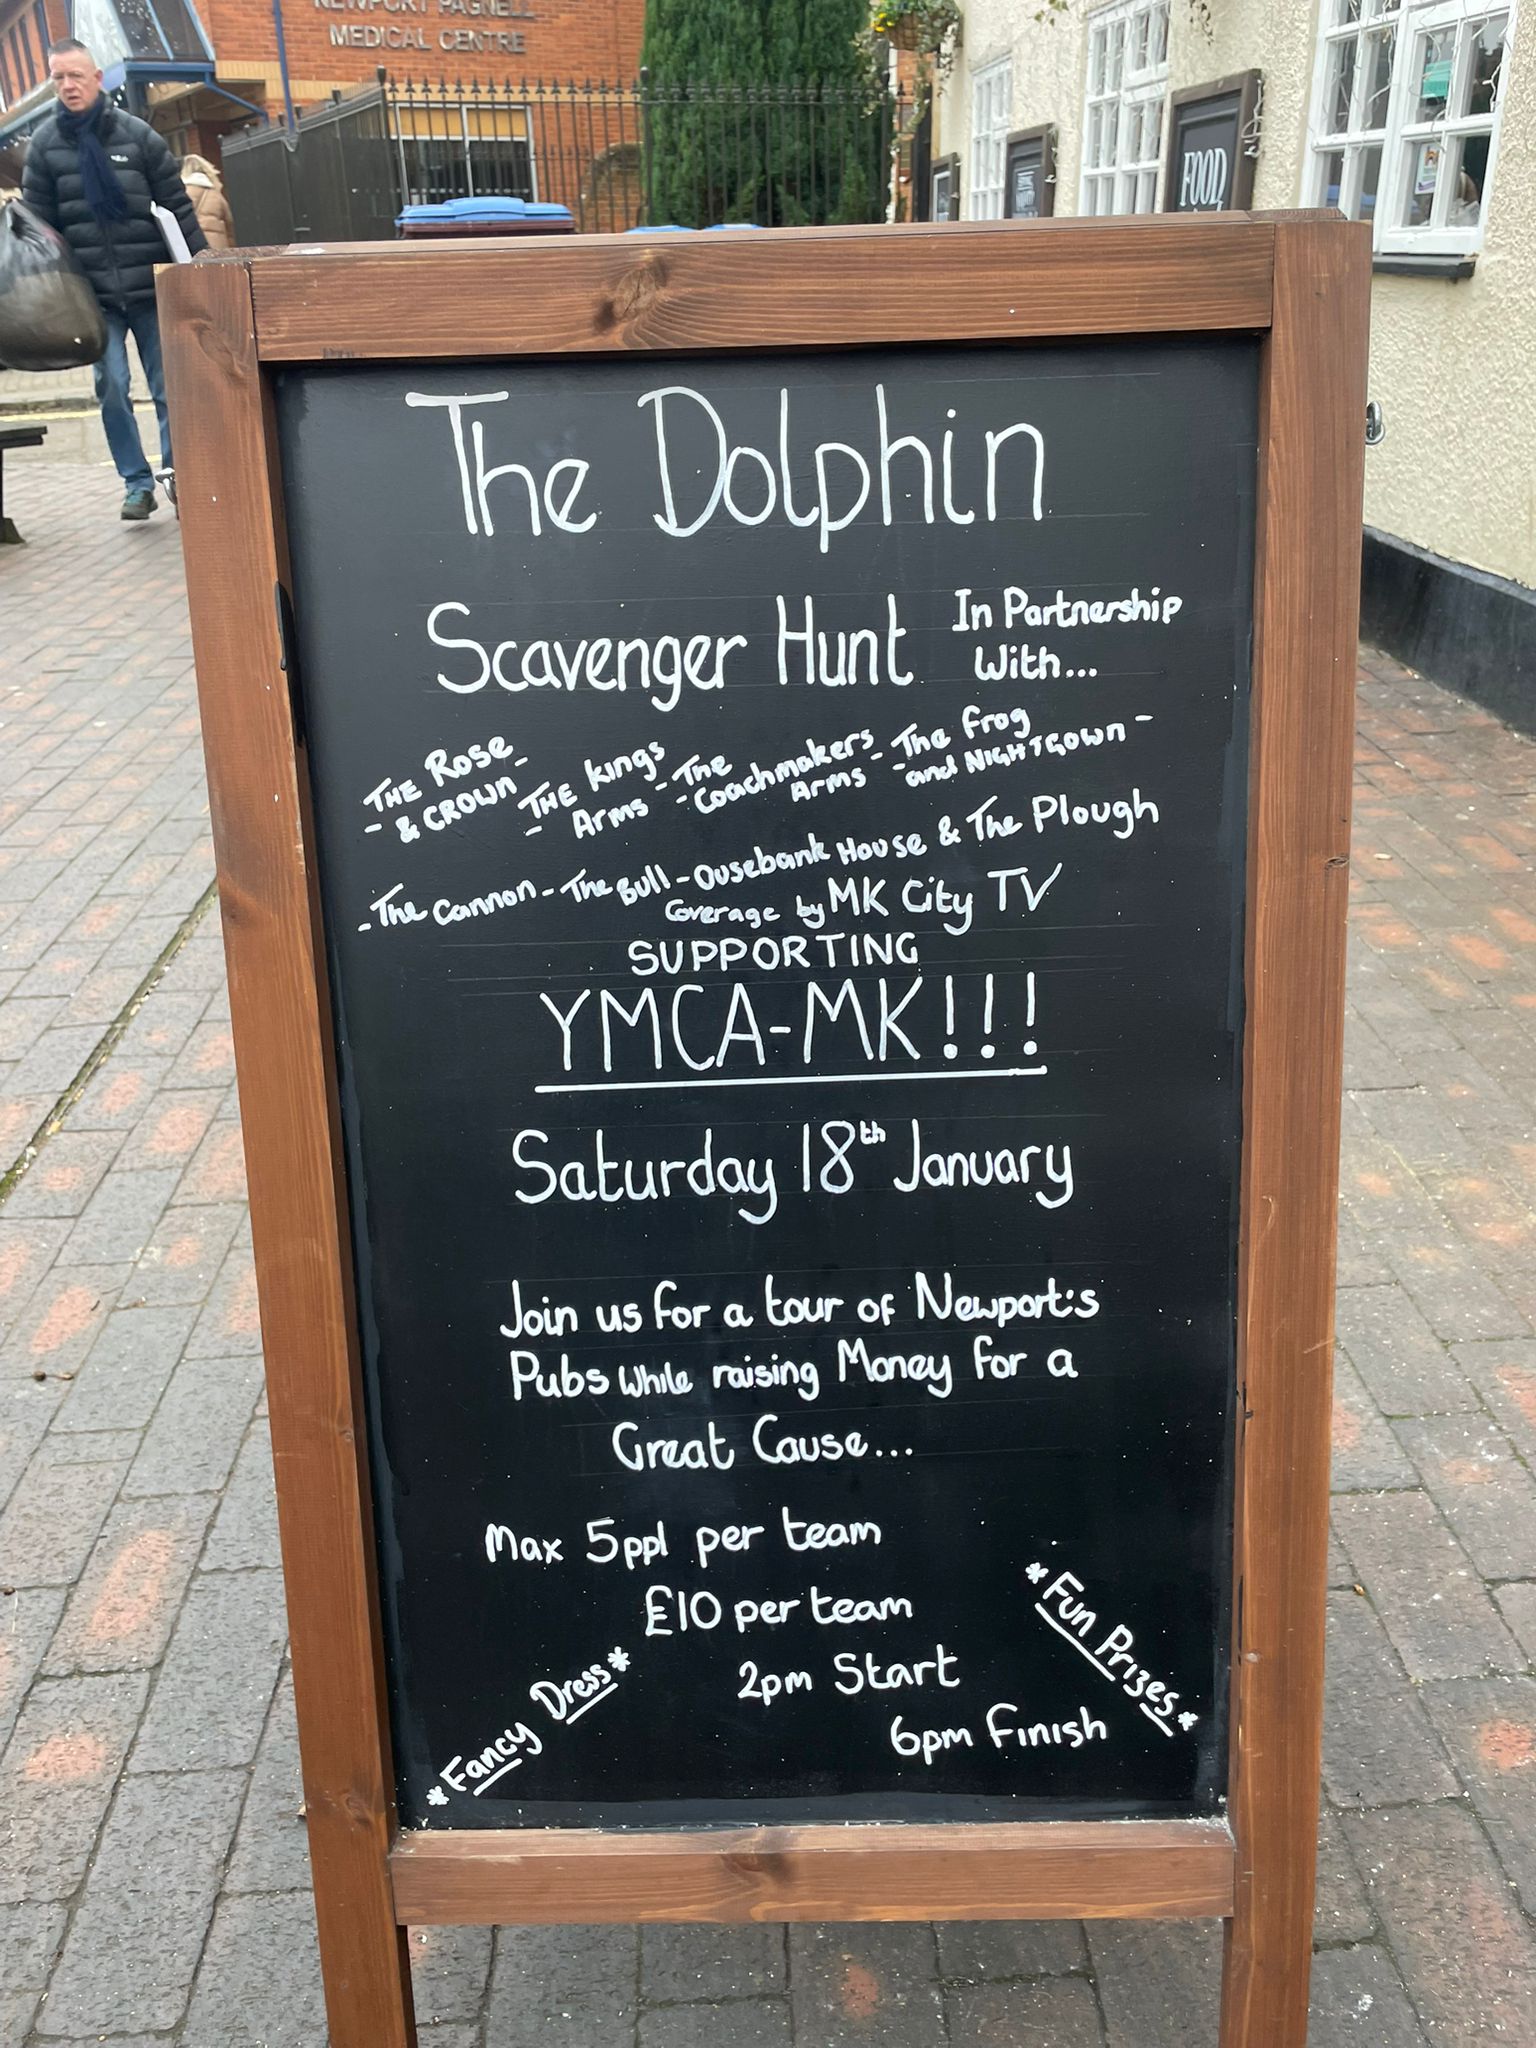 NEWPORT PAGNELL
MEDICAL CENTRE
FOOD
The Dolphin
Scavenger Hunt
In Partnership
With...
- THE Rose
& CROWN -
- THE Kings
Arms -
- The
Coachmakers
Arms -
- The Frog
and NIGHTGOWN -
- The Cannon - The Bull - Ousebank House & The Plough
Coverage by MK City TV
SUPPORTING
YMCA-MK!!!
Saturday 18th January
Join us for a tour of Newport's
Pubs while raising Money for a
Great Cause...
Max 5ppl per team
£10 per team
2pm Start
6pm Finish
*Fancy Dress*
*Fun Prizes*